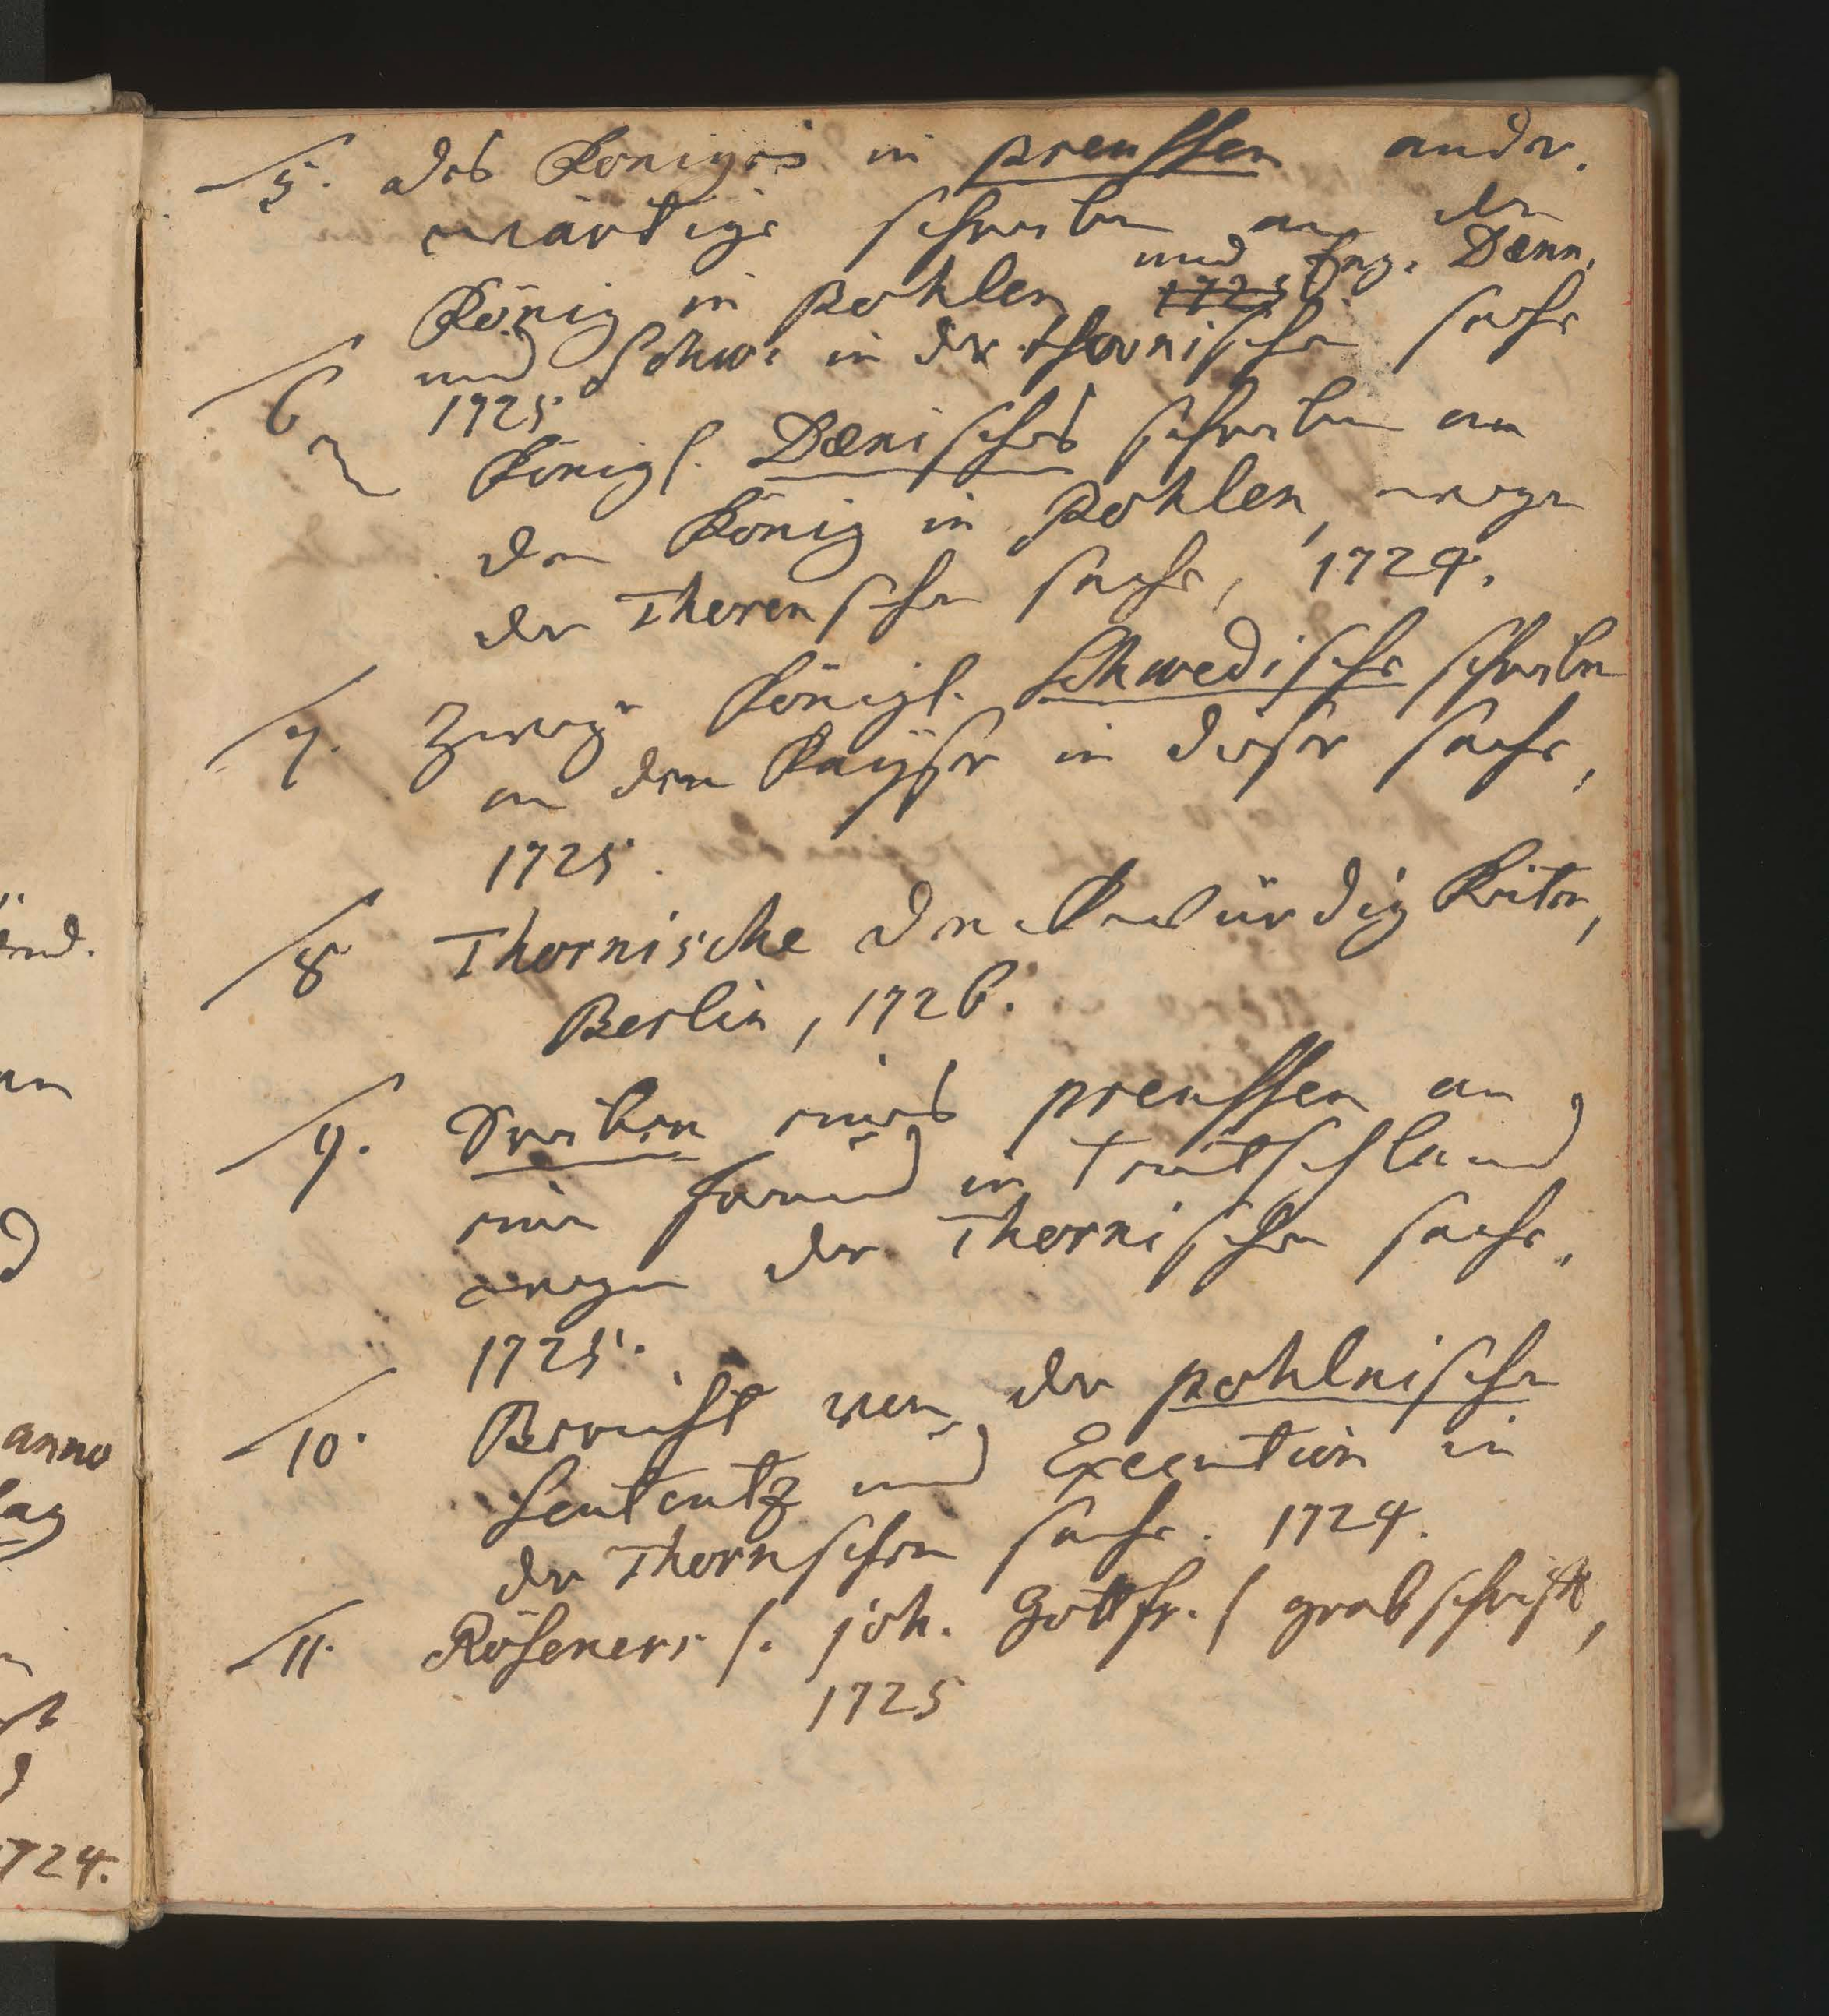 5. des Königes in Preussen ander-
wärtige schreiben an den
König in Pohlen 1725 und Eng. Dænn.
und Schw: in der thornischen sache
1725
6 Königl. Dænisches schreiben an
den König in Pohlen, wegen
der Thorenschen sache, 1724.
7. Zweÿ Königl. Schwedische schreiben
an den Kaÿser in dieser sache,
1725.
8 Thornische denckwürdigkeiten,
Berlin, 1726.
9. eines preussen an
einen freund in Teutschland
wegen der Thornischen sache.
1725.
10. Bericht von der pohlnischen
Sententz und Execution in
der Thornschen sache. 1724.
11. Röseners /. joh. Gottfr. / grabschrift,
1725
anno
1724.